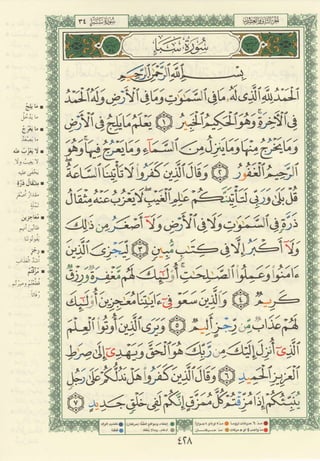 سُورَةُ سَبَإٍ ٣٤
الجزء الثاني والعشرون
سُورَةُ سَبَإٍ
بِسْمِ اللَّهِ الرَّحْمَٰنِ الرَّحِيمِ
الْحَمْدُ لِلَّهِ الَّذِي لَهُ مَا فِي السَّمَٰوَٰتِ وَمَا فِي الْأَرْضِ وَلَهُ الْحَمْدُ
فِي الْآخِرَةِ وَهُوَ الْحَكِيمُ الْخَبِيرُ ١ يَعْلَمُ مَا يَلِجُ فِي الْأَرْضِ
وَمَا يَخْرُجُ مِنْهَا وَمَا يَنزِلُ مِنَ السَّمَاءِ وَمَا يَعْرُجُ فِيهَا وَهُوَ
الرَّحِيمُ الْغَفُورُ ٢ وَقَالَ الَّذِينَ كَفَرُوا لَا تَأْتِينَا السَّاعَةُ
قُلْ بَلَىٰ وَرَبِّي لَتَأْتِيَنَّكُمْ عَٰلِمِ الْغَيْبِ لَا يَعْزُبُ عَنْهُ مِثْقَالُ
ذَرَّةٍ فِي السَّمَٰوَٰتِ وَلَا فِي الْأَرْضِ وَلَا أَصْغَرُ مِن ذَٰلِكَ
وَلَا أَكْبَرُ إِلَّا فِي كِتَٰبٍ مُّبِينٍ ٣ لِّيَجْزِيَ الَّذِينَ
ءَامَنُوا وَعَمِلُوا الصَّٰلِحَٰتِ أُولَٰئِكَ لَهُم مَّغْفِرَةٌ وَرِزْقٌ
كَرِيمٌ ٤ وَالَّذِينَ سَعَوْ فِي ءَايَٰتِنَا مُعَٰجِزِينَ أُولَٰئِكَ
لَهُمْ عَذَابٌ مِّن رِّجْزٍ أَلِيمٌ ٥ وَيَرَى الَّذِينَ أُوتُوا الْعِلْمَ
الَّذِي أُنزِلَ إِلَيْكَ مِن رَّبِّكَ هُوَ الْحَقَّ وَيَهْدِي إِلَىٰ صِرَٰطِ
الْعَزِيزِ الْحَمِيدِ ٦ وَقَالَ الَّذِينَ كَفَرُوا هَلْ نَدُلُّكُمْ عَلَىٰ رَجُلٍ
يُنَبِّئُكُمْ إِذَا مُزِّقْتُمْ كُلَّ مُمَزَّقٍ إِنَّكُمْ لَفِي خَلْقٍ جَدِيدٍ ٧
مَا يَلِجُ
مَا يَعْرُجُ
لَا يَعْزُبُ عَنْهُ
مِثْقَالُ ذَرَّةٍ
مُعَاجِزِينَ
رِجْزٍ
مُزِّقْتُمْ
٤٢٨